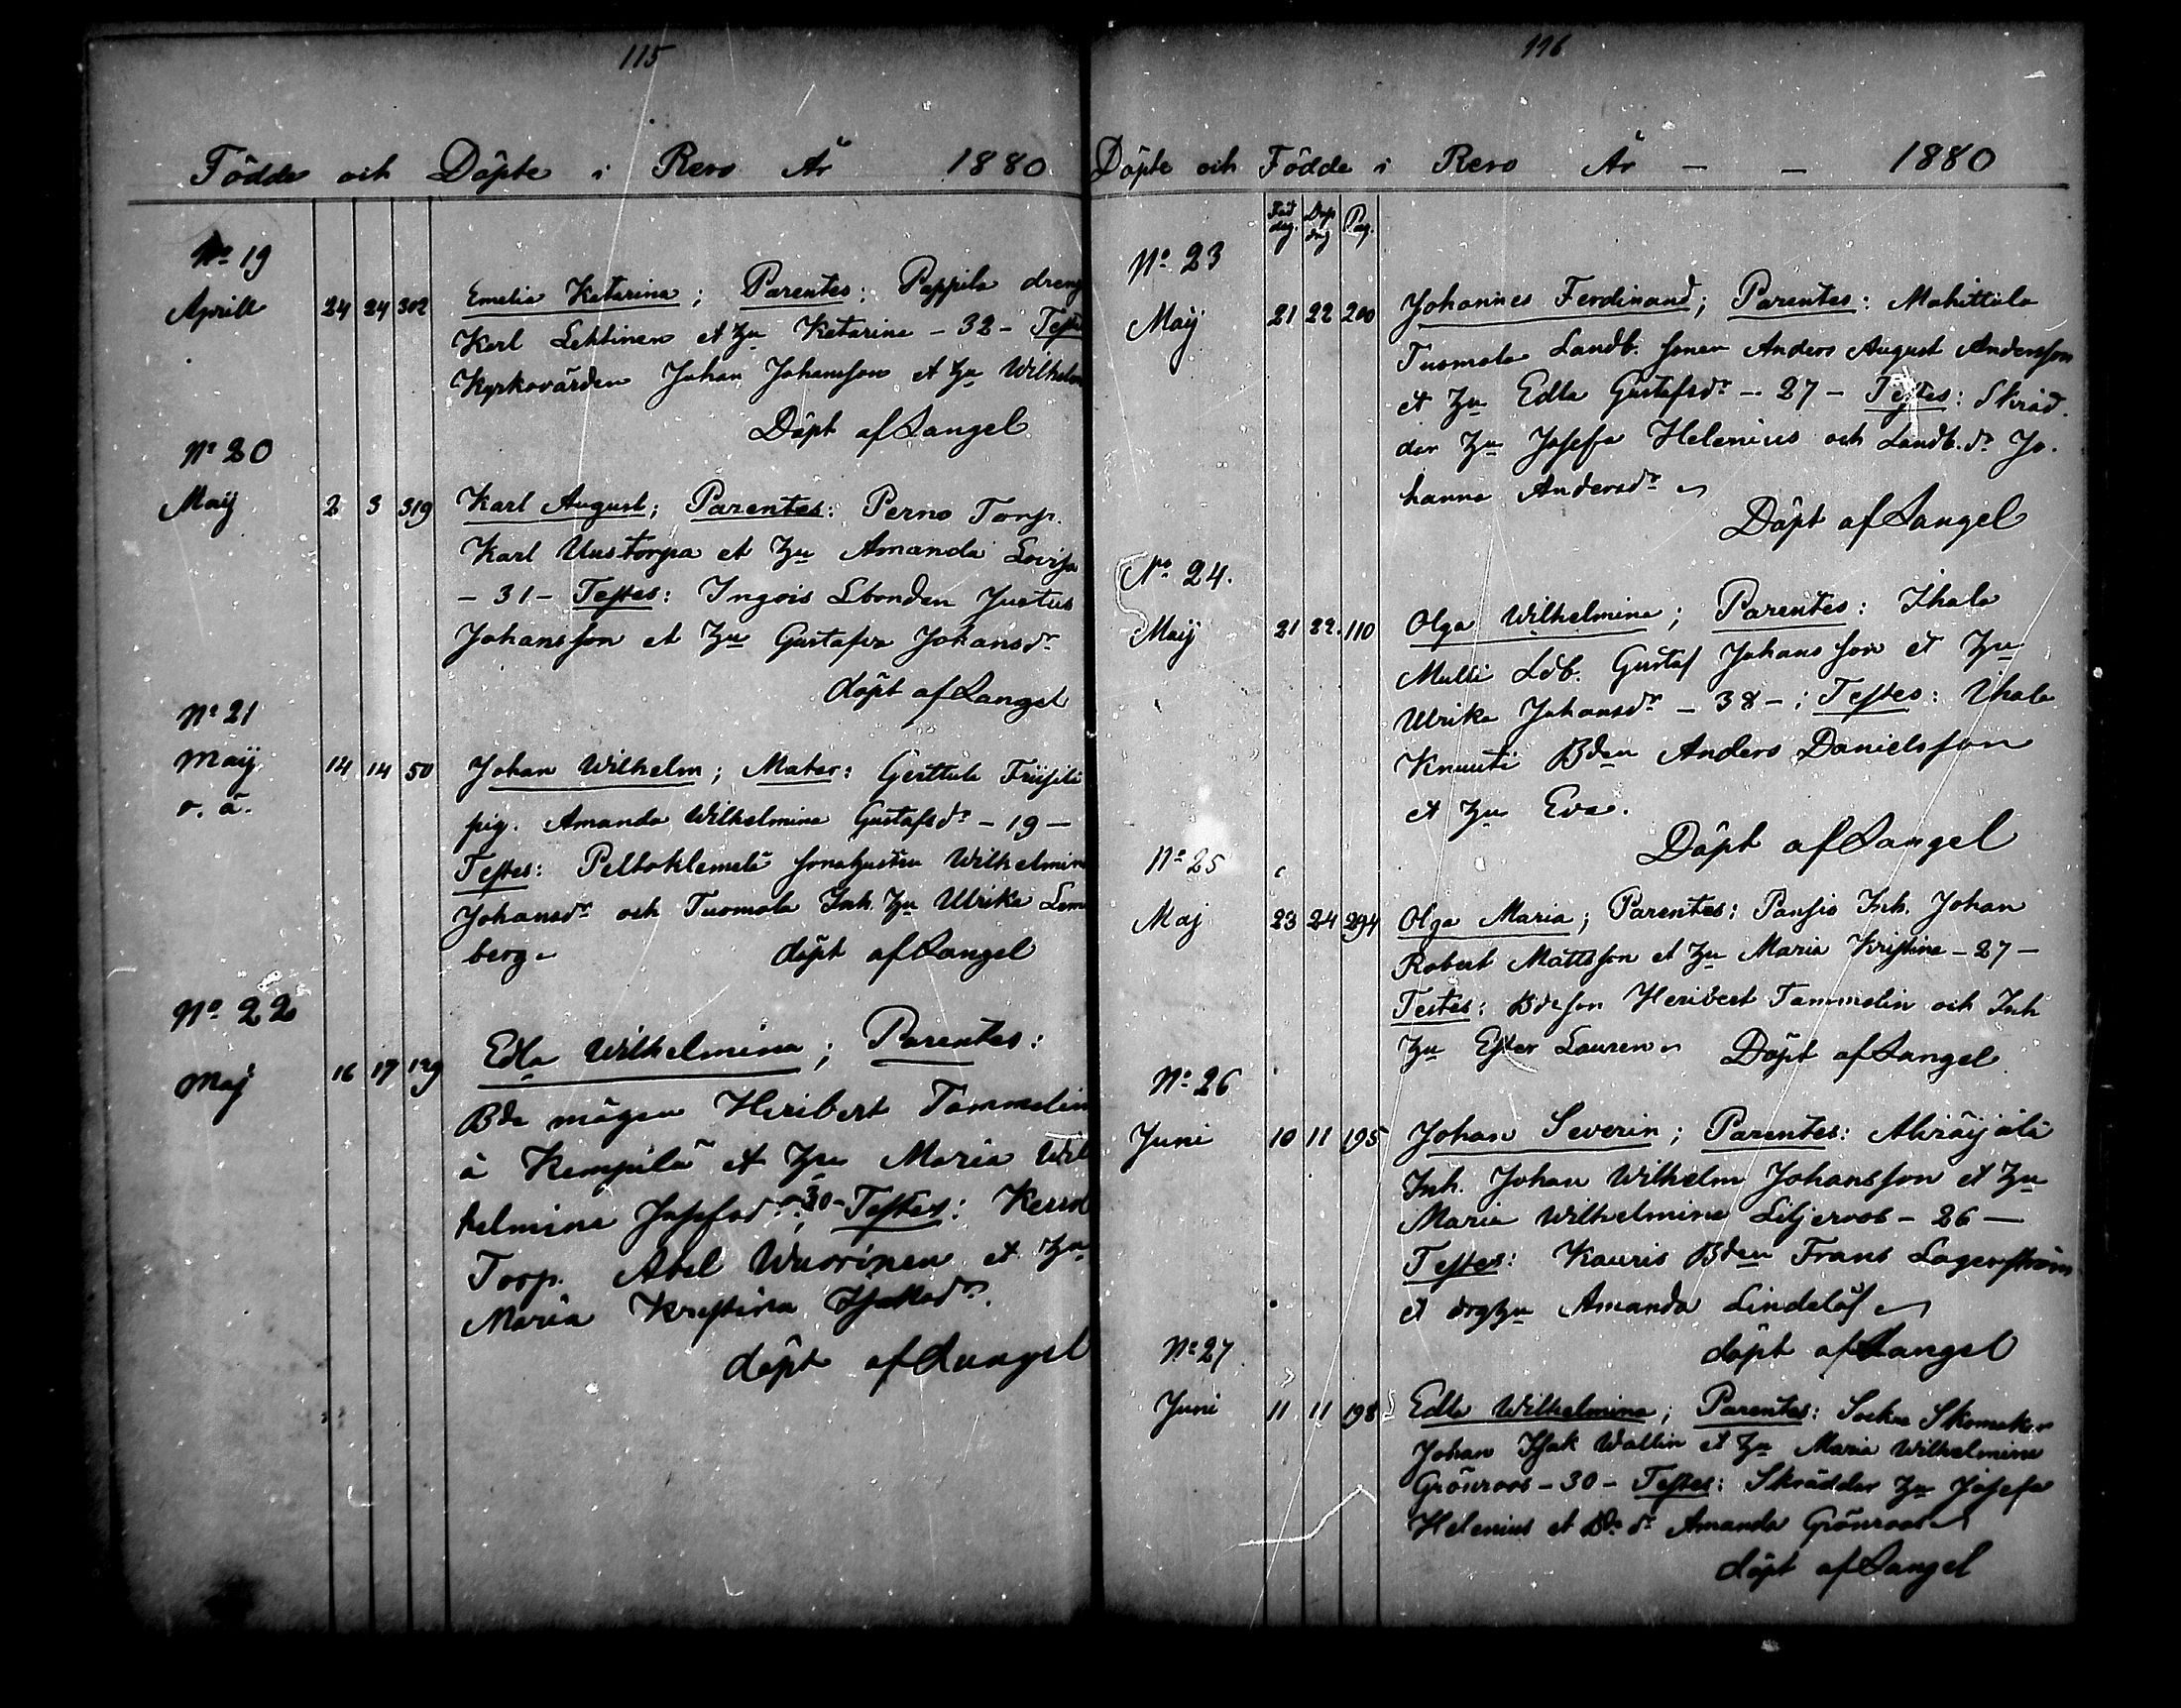 115
Födde och Döpte i Reso År 1880
No 19
Aprill 24 24 302 Emelia Katarina; Parentes: Pappila dreng
Karl Lehtinen et hu Katarina - 32 - Testes
Kyrkovärden Johan Johansson et hu Wilhelm
Döpt af Langel
No 20
Maij 2 3 319 Karl August; Parentes: Perno Torp.
Karl Uustorpa et hu Amanda Lovisa
- 31 - Testes: Ingois Lbonden Justus
Johansson et hu Gustafva Johansdr
döpt af Langel
No 21
Maij 14 14 50 Johan Wilhelm; Mater: Gerttula Friisilä
o. ä. pig. Amanda Wilhelmina Gustafsdr - 19 -
Testes: Peltoklemelä sonahustru Wilhelmin
Johansdr och Tuomola Inh. hu Ulrika Lem
berg. döpt af Langel
No 22
Maij 16 17 129 Edla Wilhelmina; Parentes:
Bde mågen Heribert Tammelin
å Kempilä et hu Maria Wil
helmina Josefsdr - 30 - Testes: Kerro
Torp. Abel Wuorinen et hu
Maria Kristina Isaksdr.
döpt af Langel
116
Döpte och Födde i Reso År - - 1880
Föd dag. Dop dag Pag.
No 23
Maij 21 22 200 Johannes Ferdinand; Parentes: Mahittula
Tuomola Landb. sonen Anders August Andersson
et hu Edla Gustafsdr - 27 - Testes: Skräd
dar hu Josefa Helenius och Landb. dr Jo
hanna Andersdr
Döpt af Langel
No 24.
Maij 21 22 110 Olga Wilhelmina; Parentes: Ihala
Mulli Ldb. Gustaf Johansson et hu
Ulrika Johansdr - 38 -; Testes: Ihala
Knuuti Bden Anders Danielsson
et hu Eva.
Döpt af Langel
No 25
Maj 23 24 294 Olga Maria; Parentes: Pansio Inh. Johan
Robert Mattsson et hu Maria Kristina - 27 -
Testes: Bdeson Heribert Tammelin och Inh
hu Ester Lauren Döpt af Langel
No 26
Juni 10 11 195 Johan Severin; Parentes: Aliräijälä
Inh. Johan Wilhelm Johansson et hu
Maria Wilhelmina Liljeroos - 26 -
Testes: Kauris Bden Frans Lagerström
et drghu Amanda Lindelöf
döpt af Langel
No 27
Juni 11 11 198 Edla Wilhelmina; Parentes: Sockne Skomakar
Johan Isak Wallin et hu Maria Wilhelmina
Grönroos - 30 - Testes: Skräddar hu Josefa
Helenius et Bde dr Amanda Grönroos
döpt af Langel